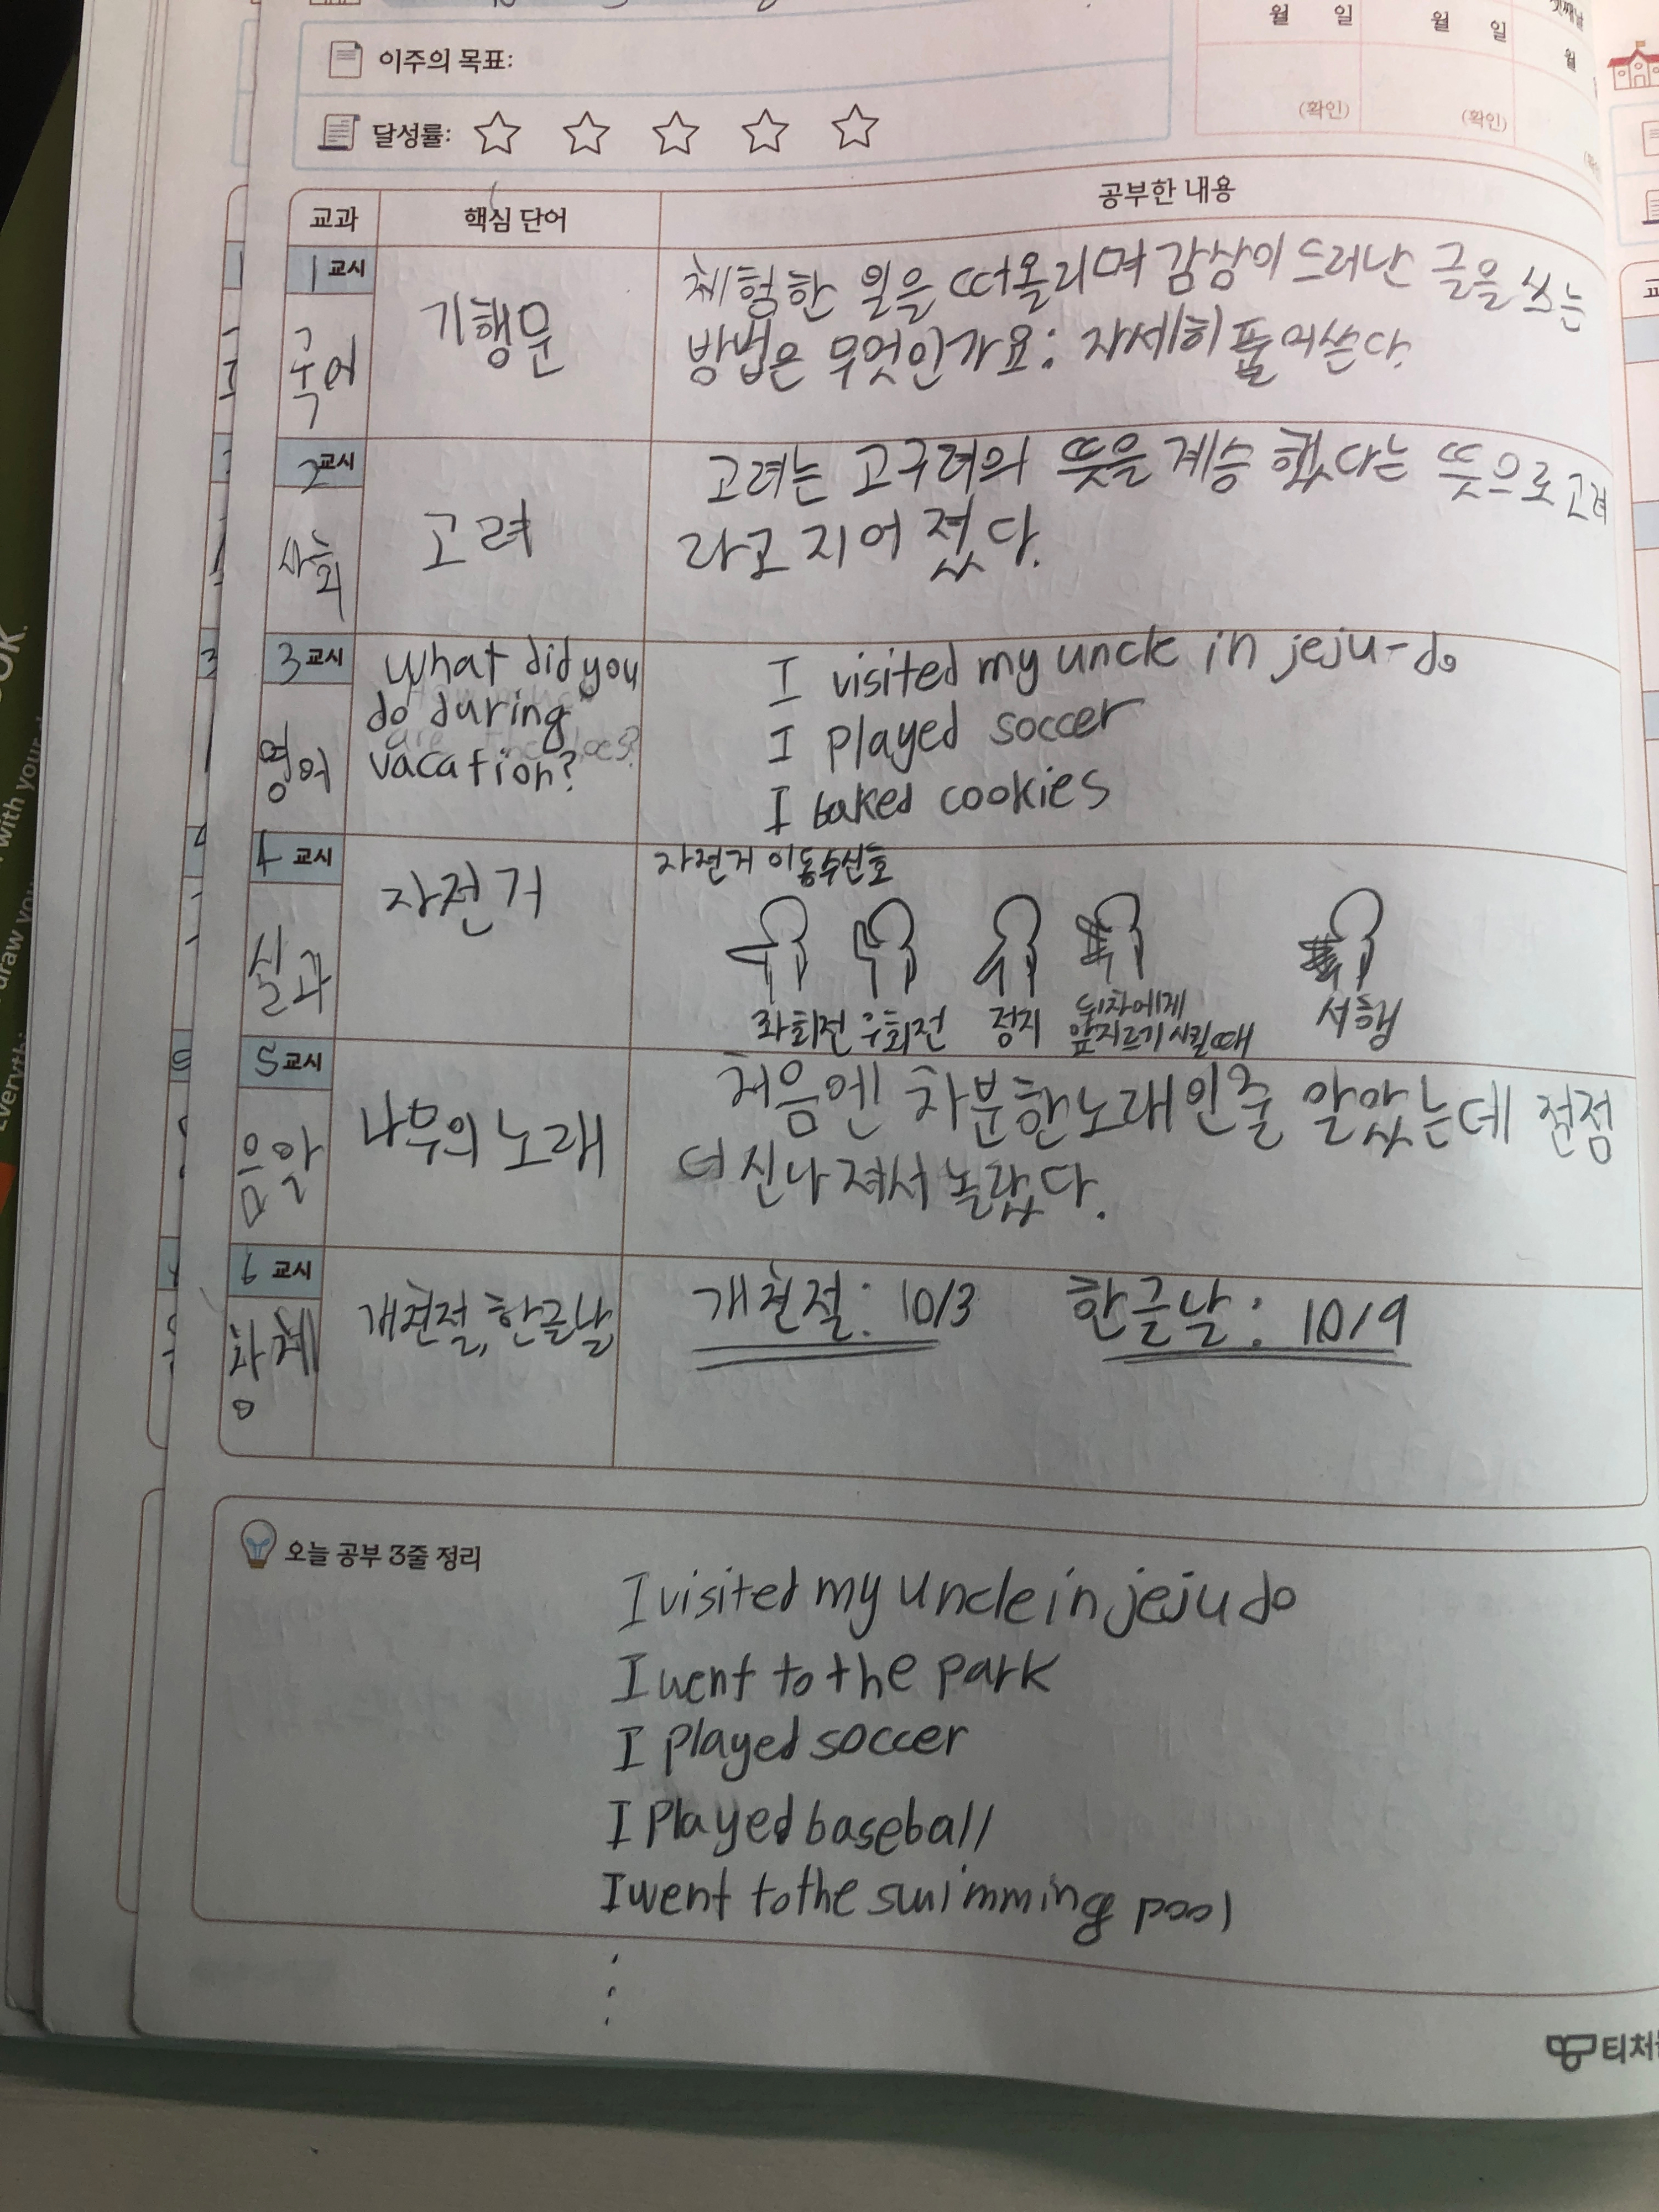 이주의 목표:
달성률:
월 일
월 일
월
(확인)
(확인)
교과
핵심 단어
공부한 내용
1 교시
국어
기행문
체험한 일을 떠올리며 감상이 드러난 글을 쓰는
방법은 무엇인가요: 자세히 풀어쓴다.
2교시
사회
고려
고려는 고구려의 뜻을 계승 했다는 뜻으로 고려
라고 지어 졌다.
3 교시
영어
What did you
do during
vacation?
I visited my uncle in jeju-do
I played soccer
I baked cookies
4 교시
실과
자전거
자전거 이동수신호
좌회전 우회전 정지 뒤차에게 서행
앞지르기 시킬때
5 교시
음악
나무의 노래
처음엔 차분한노래인줄 알았는데 전점
더 신나 져서 놀랐다.
6 교시
창체
개천절, 한글날
개천절: 10/3 한글날: 10/9
오늘 공부 3줄 정리
I visited my uncle in jeju do
I went to the park
I played soccer
I Played baseball
I went to the swimming pool
티처